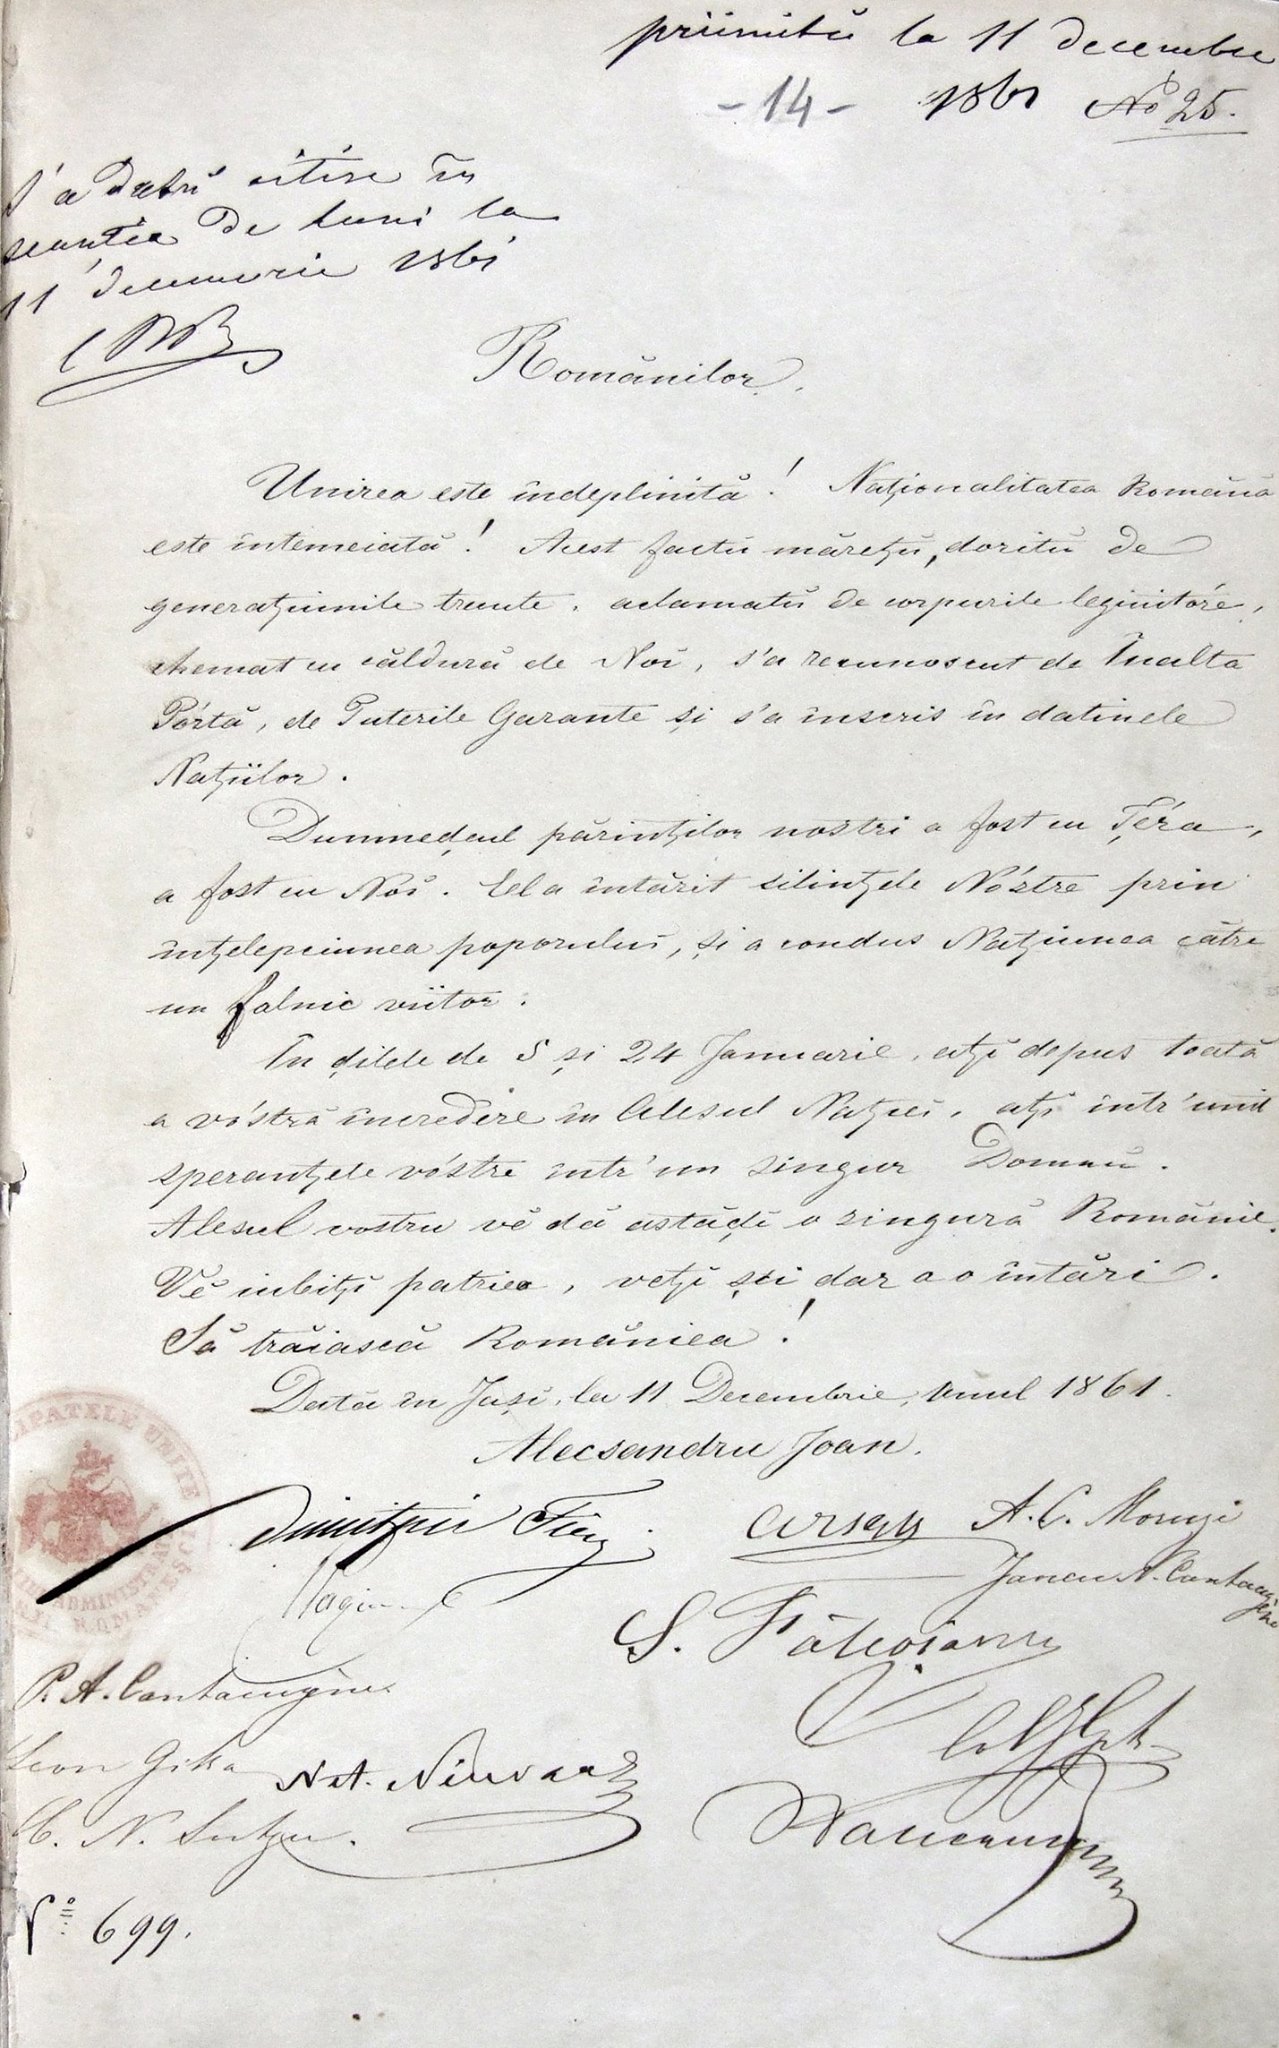 priimitŭ la 11 decembre
- 14 - 1861 No 25.
S'a datŭ citire în
seanția de luni la
11 decemvrie 1861
Românilor.
Unirea este îndeplinită! Naționalitatea Română
este întemeiată! Acest faptu mărețu, doritŭ de
generațiunile trecute, aclamatŭ de corpurile legiuitóre,
chemat cu căldură de Noi, s'a recunoscut de Înalta
Pórtă, de Puterile Garante și s'a înscris în datinele
Națiilor.
Dumnedeul părinților nostri a fost cu Țéra,
a fost cu Noi. El a întărit silințele Nóstre prin
înțelepciunea poporului, și a condus Națiunea către
un falnic viitor.
În dilele de 5 și 24 Januarie, ați depus toată
a vóstră încredere în Alesul Nației, ați într'unit
speranțele vóstre într'un singur Domnŭ.
Alesul vostru vĕ dă astădi o singură Românie.
Vĕ iubiți patriea, veți sci dar a o întări.
Să trăiască Româniea!
Datŭ în Jași, la 11 Decembrie, Anul 1861.
Alecsandru Joan.
Dimitrie
A. C. Moruzi
Jancu A. Cantacuzino
S. Fălcoianu
P. A. Cantacuzinu
Leon Gika
C. N. Sutzu.
No 699.
PRINCIPATELE UNITE